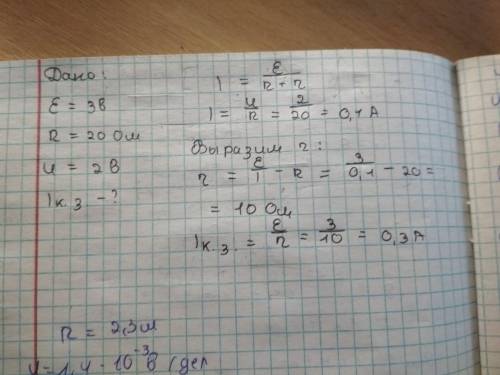 Дано:
ε = 3В
R = 20 Ом
U = 2 В
Iк.з. - ?
I = ε/(R + r)
I = U/R = 2/20 = 0,1 А
Выразим r:
r = ε/I - R = 3/0,1 - 20 =
= 10 Ом
Iк.з. = ε/r = 3/10 = 0,3 А
R = 2,3 м